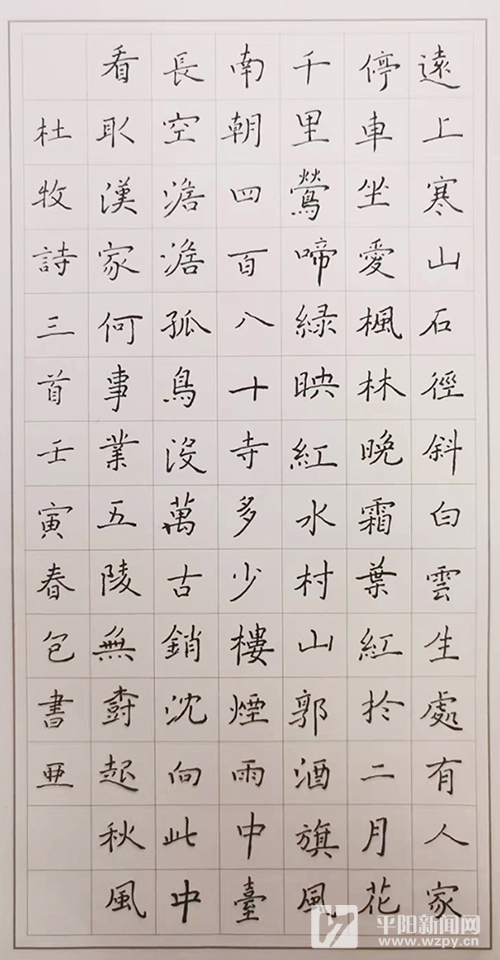 遠上寒山石徑斜白雲生處有人家
停車坐愛楓林晚霜葉紅於二月花
千里鶯啼綠映紅水村山郭酒旗風
南朝四百八十寺多少樓煙雨中臺
長空澹澹孤鳥沒萬古銷沈向此中
看取漢家何事業五陵無樹起秋風
杜牧詩三首壬寅春包書亜
平阳新闻网
www.wzpy.cn